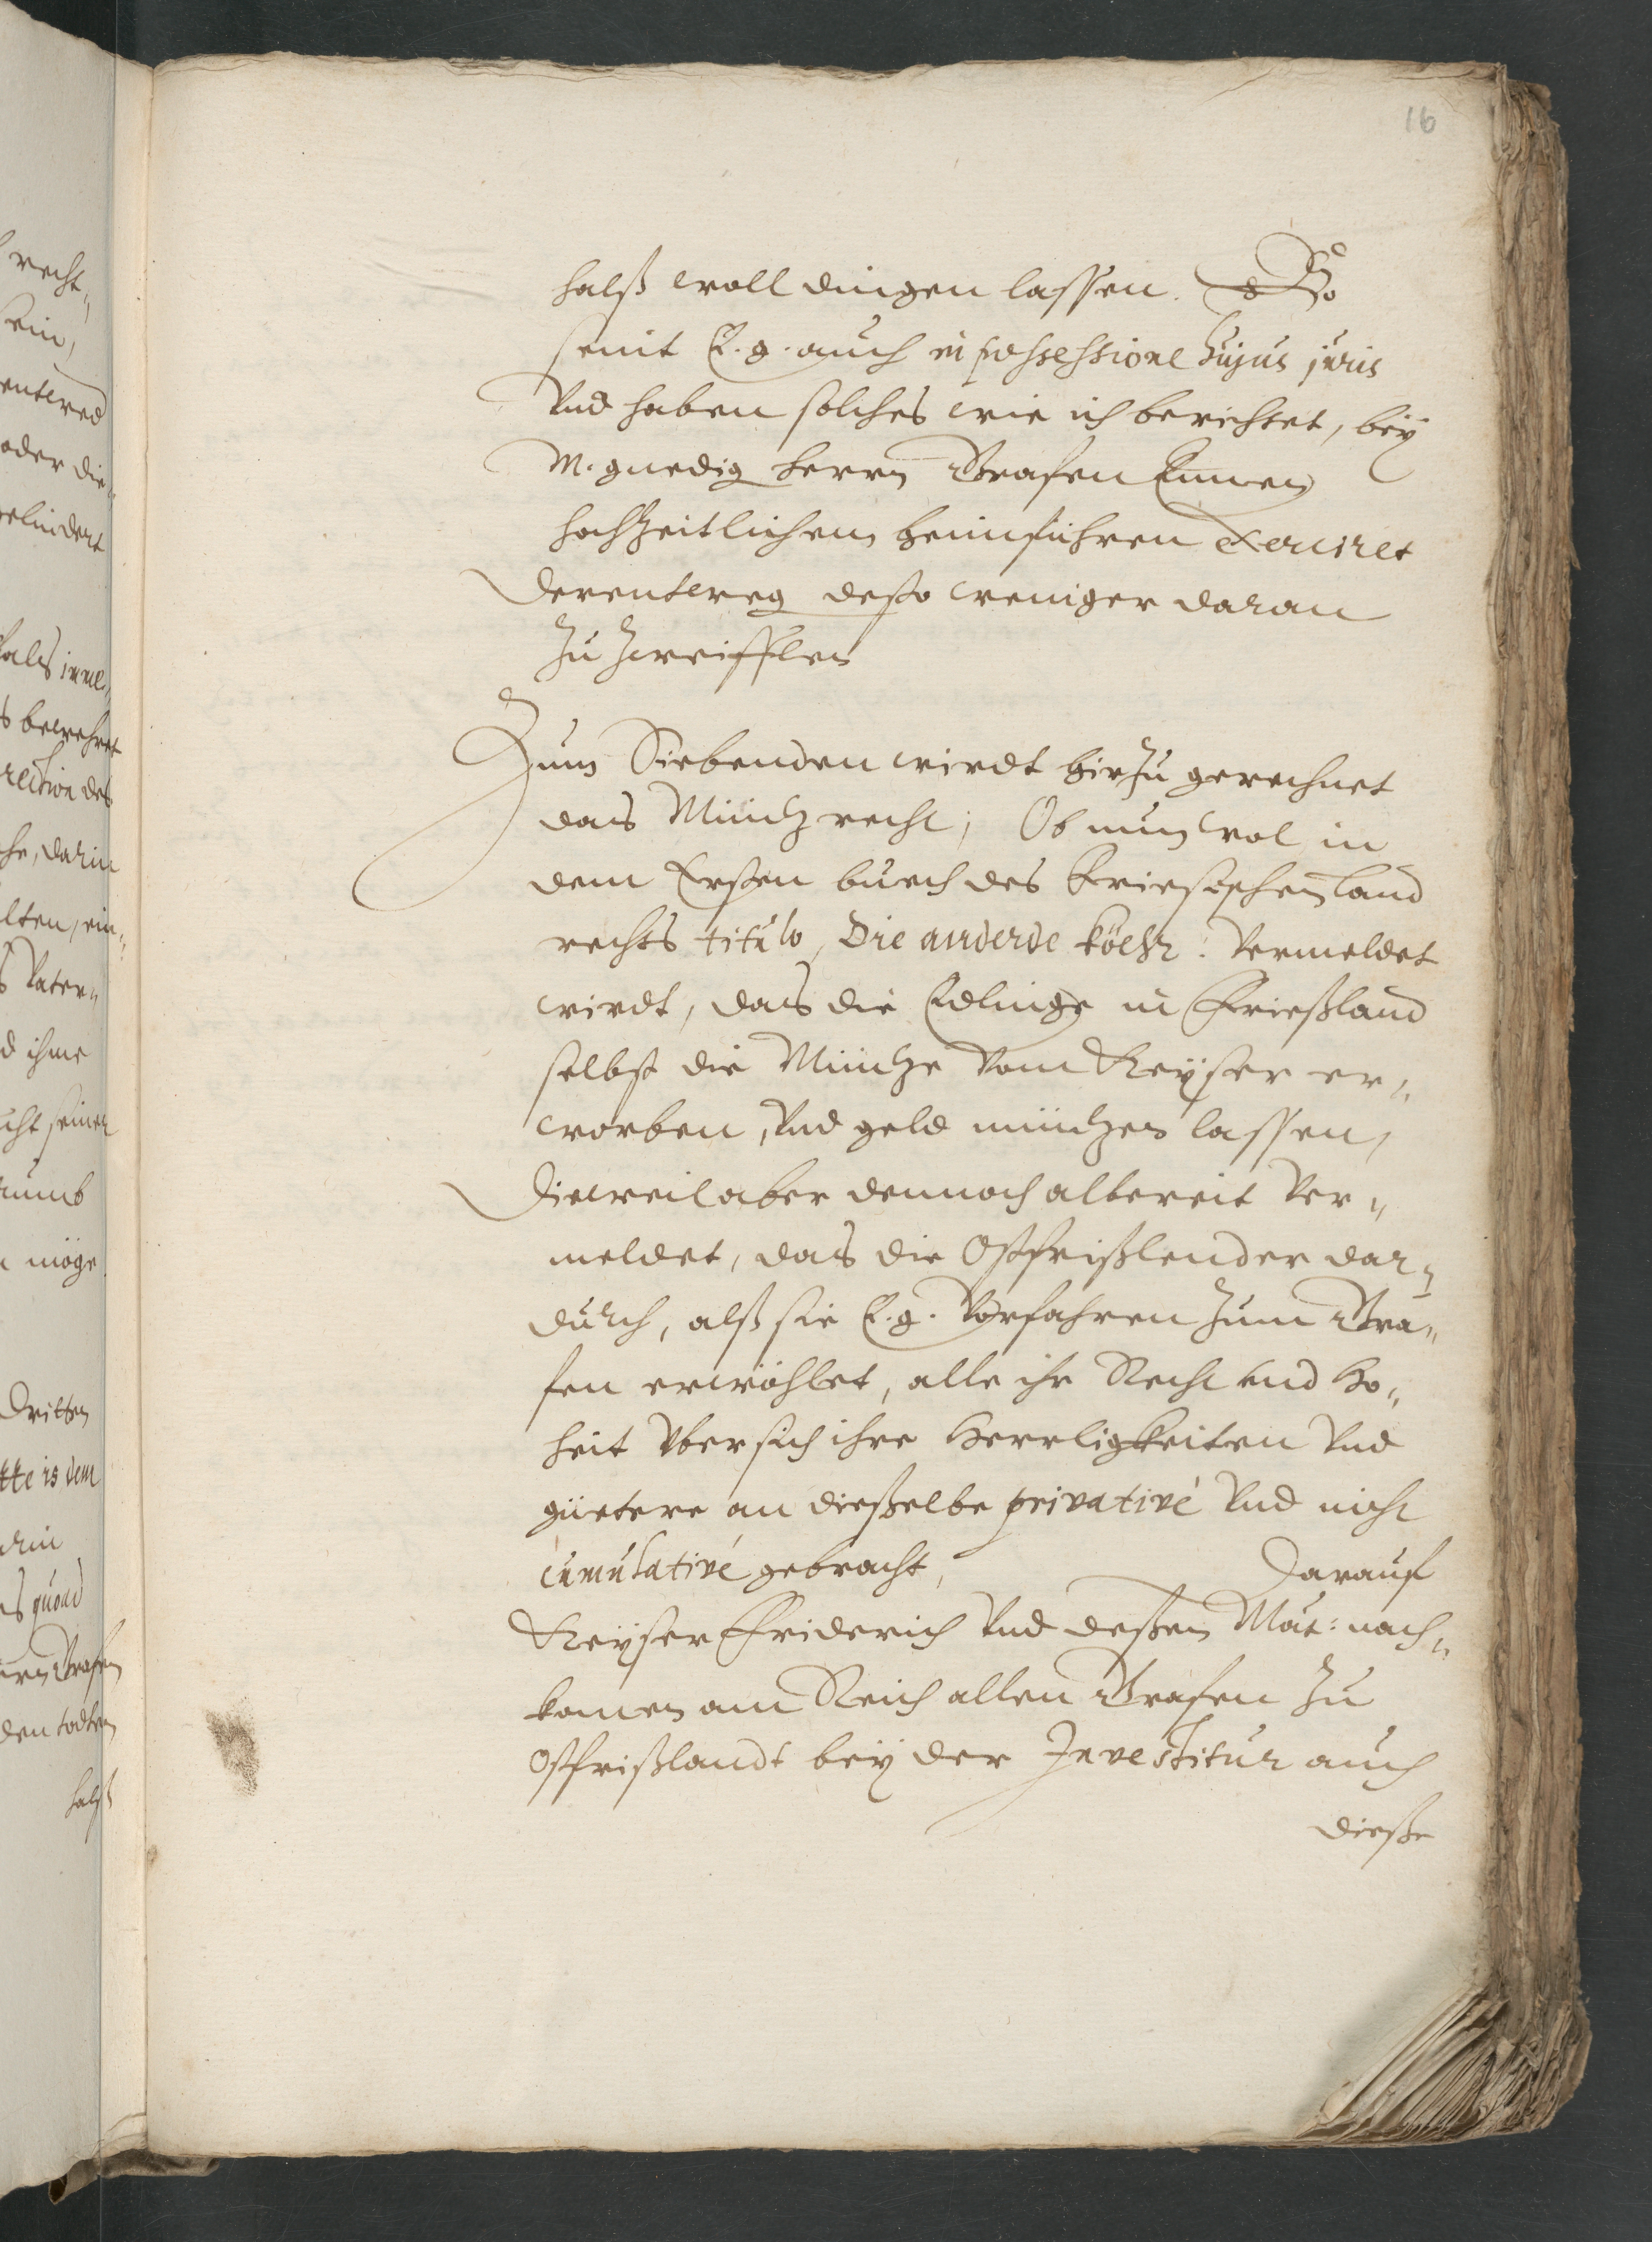 16
halß woll dingen lassen. So
seint E. g. auch in possessione hujus juris
Vnd haben solches wie ich berichtet, bey
M. gnedig Herrn Grafen Ennen
hochzeitlichem heimführen exerciret
Derentweg desto weniger daran
zu zweifflen
Zum Siebenden wirdt hirzu gerechnet
das Müntz recht; Ob nun wol in
dem Ersten buech des Friesischen land
rechts titulo, Die anderde köehr. Vermeldet
wirdt, das die Edlinge in Frießland
selbst die Müntze vom Keyser er„
worben, Vnd geld müntzen lassen,
Dieweil aber dennoch albereit Ver„
meldet, das die Ostfrißlender dar„
durch, alß sie E. g. Vorfahren zum Gra„
fen erwöhlet, alle ihr Recht vnd Ho„
heit Vber sich ihre Herrligkeiten Vnd
güetere an dießelbe privativé Vnd nicht
cumulativé gebracht, Darauf
Keyser Friderich Vnd deßen Mat: nach„
komen am Reich allen Grafen zu
Ostfrißlandt bey der Investitur auch
dieße
recht„
oder die
gelindert
bewehret
darin
Vater„
d ihme
seiner
möge
Dritten
quoad
Grafen
den todten
halß